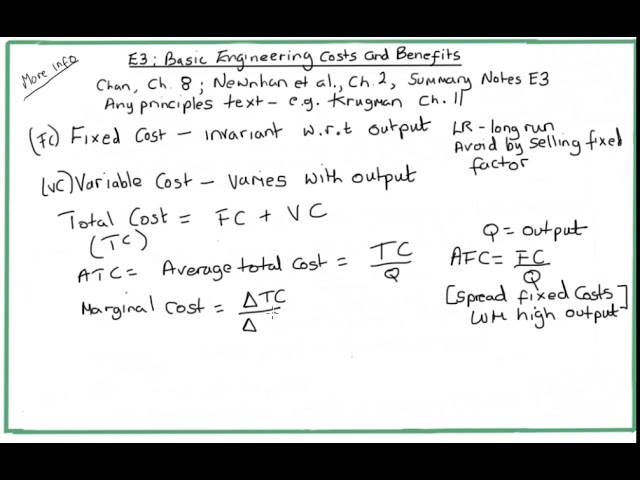 More info
E3: Basic Engineering Costs and Benefits
Chan, Ch. 8; Newnhan et al., Ch. 2, Summary Notes E3
Any principles text – e.g. Krugman Ch. 11
(FC) Fixed Cost – invariant w.r.t output
LR – long run
Avoid by selling fixed
factor
(VC) Variable Cost – varies with output
Total Cost = FC + VC
(TC)
ATC = Average total cost = TC/Q
Q = output
AFC = FC/Q
[Spread fixed costs]
with high output
Marginal Cost = ΔTC/Δ